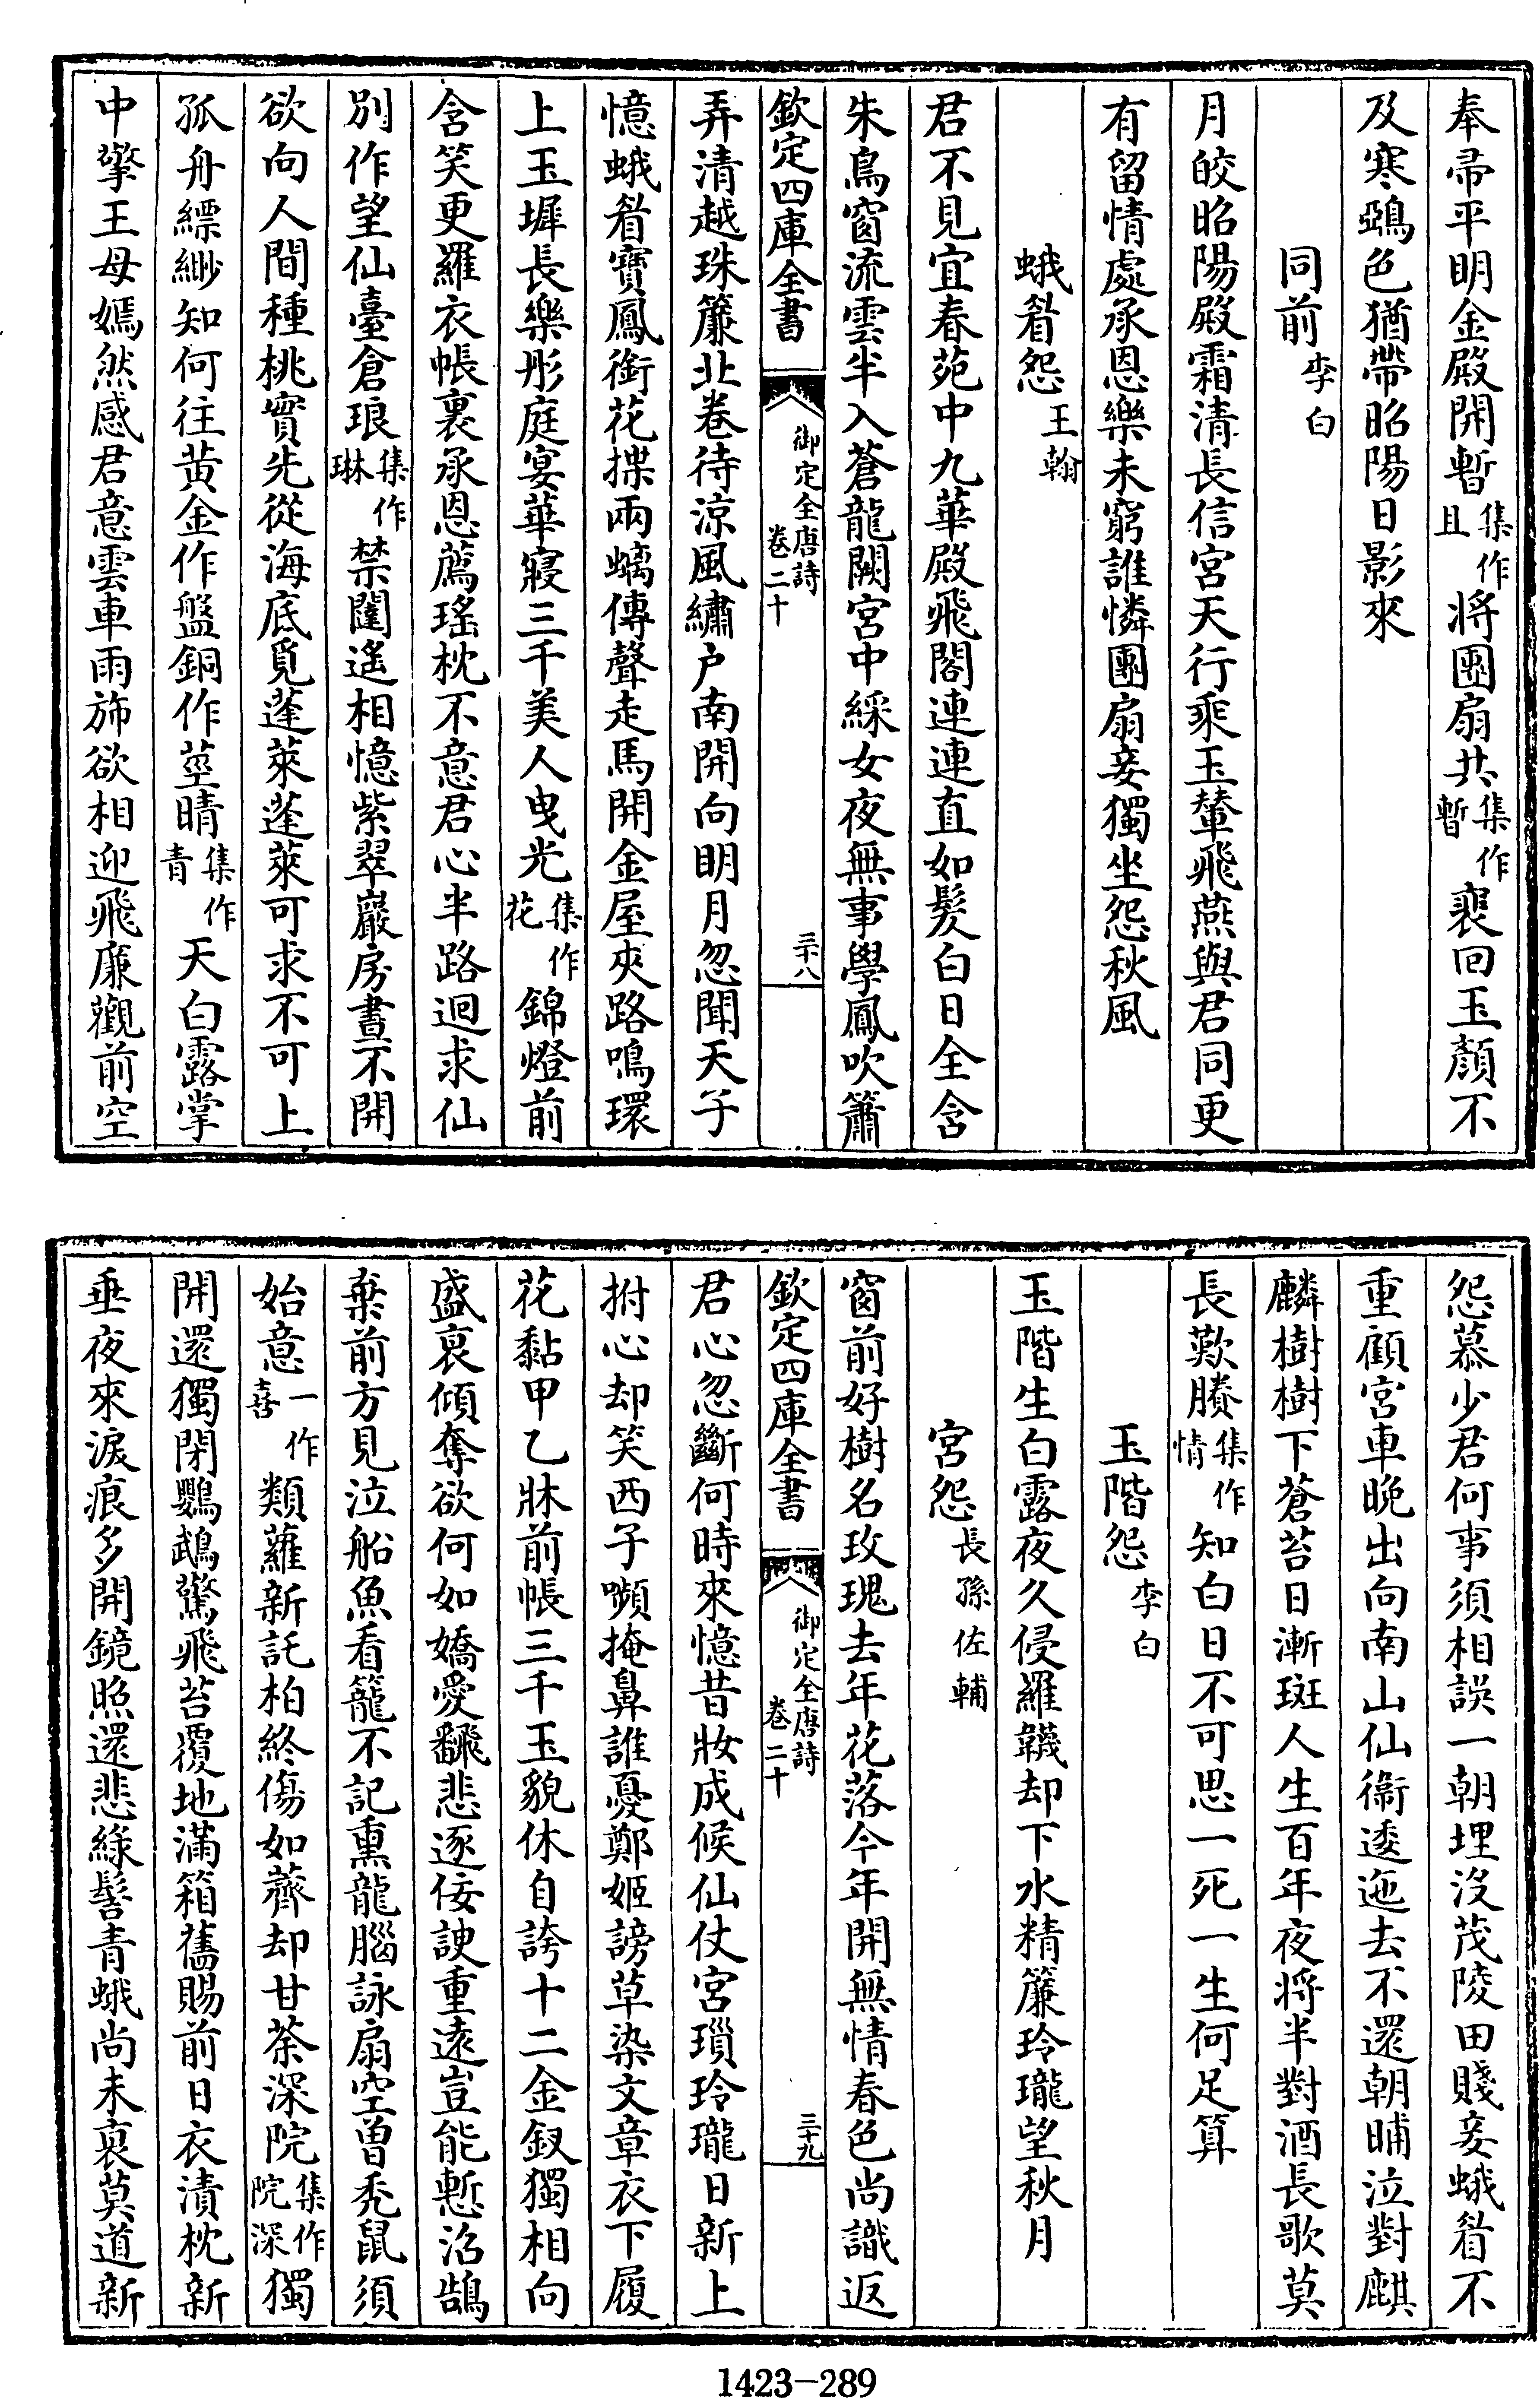 奉帚平明金殿開暫集作且將團扇共集作暫裴回玉顏不
及寒鵶色猶帶昭陽日影來
同前李白
月皎昭陽殿霜清長信宮天行乘玉輦飛燕與君同更
有留情處承恩樂未窮誰憐團扇妾獨坐怨秋風
蛾眉怨王翰
君不見宜春苑中九華殿飛閣連連直如髮白日全含
朱鳥窗流雲半入蒼龍闕宮中綵女夜無事學鳳吹簫
欽定四庫全書 御定全唐詩卷二十 三十八
弄清越珠簾北卷待涼風繡户南開向明月忽聞天子
憶蛾眉寶鳳銜花揲兩螭傳聲走馬開金屋夾路鳴環
上玉墀長樂彤庭宴華寢三千美人曳光集作花錦燈前
含笑更羅衣帳裏承恩薦瑤枕不意君心半路迴求仙
別作望仙臺倉琅集作琳禁闥遙相憶紫翠巖房晝不開
欲向人間種桃實先從海底覓蓬萊蓬萊可求不可上
孤舟縹緲知何往黄金作盤銅作莖晴集作青天白露掌
中擎王母嫣然感君意雲車雨斾欲相迎飛廉觀前空
怨慕少君何事須相誤一朝埋沒茂陵田賤妾蛾眉不
重顧宮車晚出向南山仙衞逶迤去不還朝晡泣對麒
麟樹樹下蒼苔日漸斑人生百年夜將半對酒長歌莫
長歎賸集作情知白日不可思一死一生何足算
玉階怨李白
玉階生白露夜久侵羅韈却下水精簾玲瓏望秋月
宮怨長孫佐輔
窗前好樹名玫瑰去年花落今年開無情春色尚識返
欽定四庫全書 御定全唐詩卷二十 三十九
君心忽斷何時來憶昔妝成候仙仗宮瑣玲瓏日新上
拊心却笑西子嚬掩鼻誰憂鄭姬謗草染文章衣下履
花黏甲乙牀前帳三千玉貌休自誇十二金釵獨相向
盛衰傾奪欲何如嬌愛翻悲逐佞諛重遠豈能慙沼鵠
棄前方見泣船魚看籠不記熏龍腦詠扇空曾禿鼠須
始意一作喜類蘿新託柏終傷如薺却甘荼深院集作院深獨
開還獨閉鸚鵡驚飛苔覆地滿箱舊賜前日衣漬枕新
垂夜來淚痕多開鏡照還悲綠髻青蛾尚未衰莫道新
1423-289